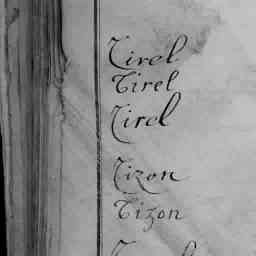 Tirel
Tirel
Tirel
Tizon
Tizon